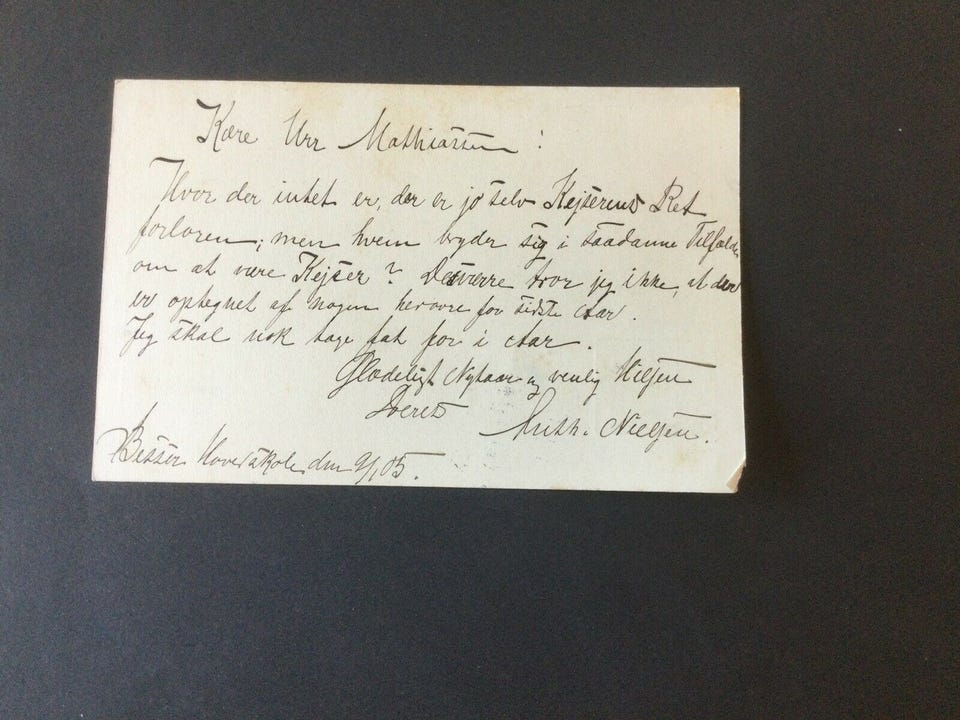 Kære Hrr Mathiassen!
Hvor der intet er, der er jo selv Kejserens Ret
forloren; men hvem bryder sig i saadanne Tilfælde
om at være Kejser? Desværre tror jeg ikke, at der
er optegnet af nogen herovre for sidste Aar.
Jeg skal nok tage fat for i Aar.
Glædeligt Nytaar og venlig Hilsen
Deres
Anth. Nielsen.
Besser Hovedskole den 9/1 05.